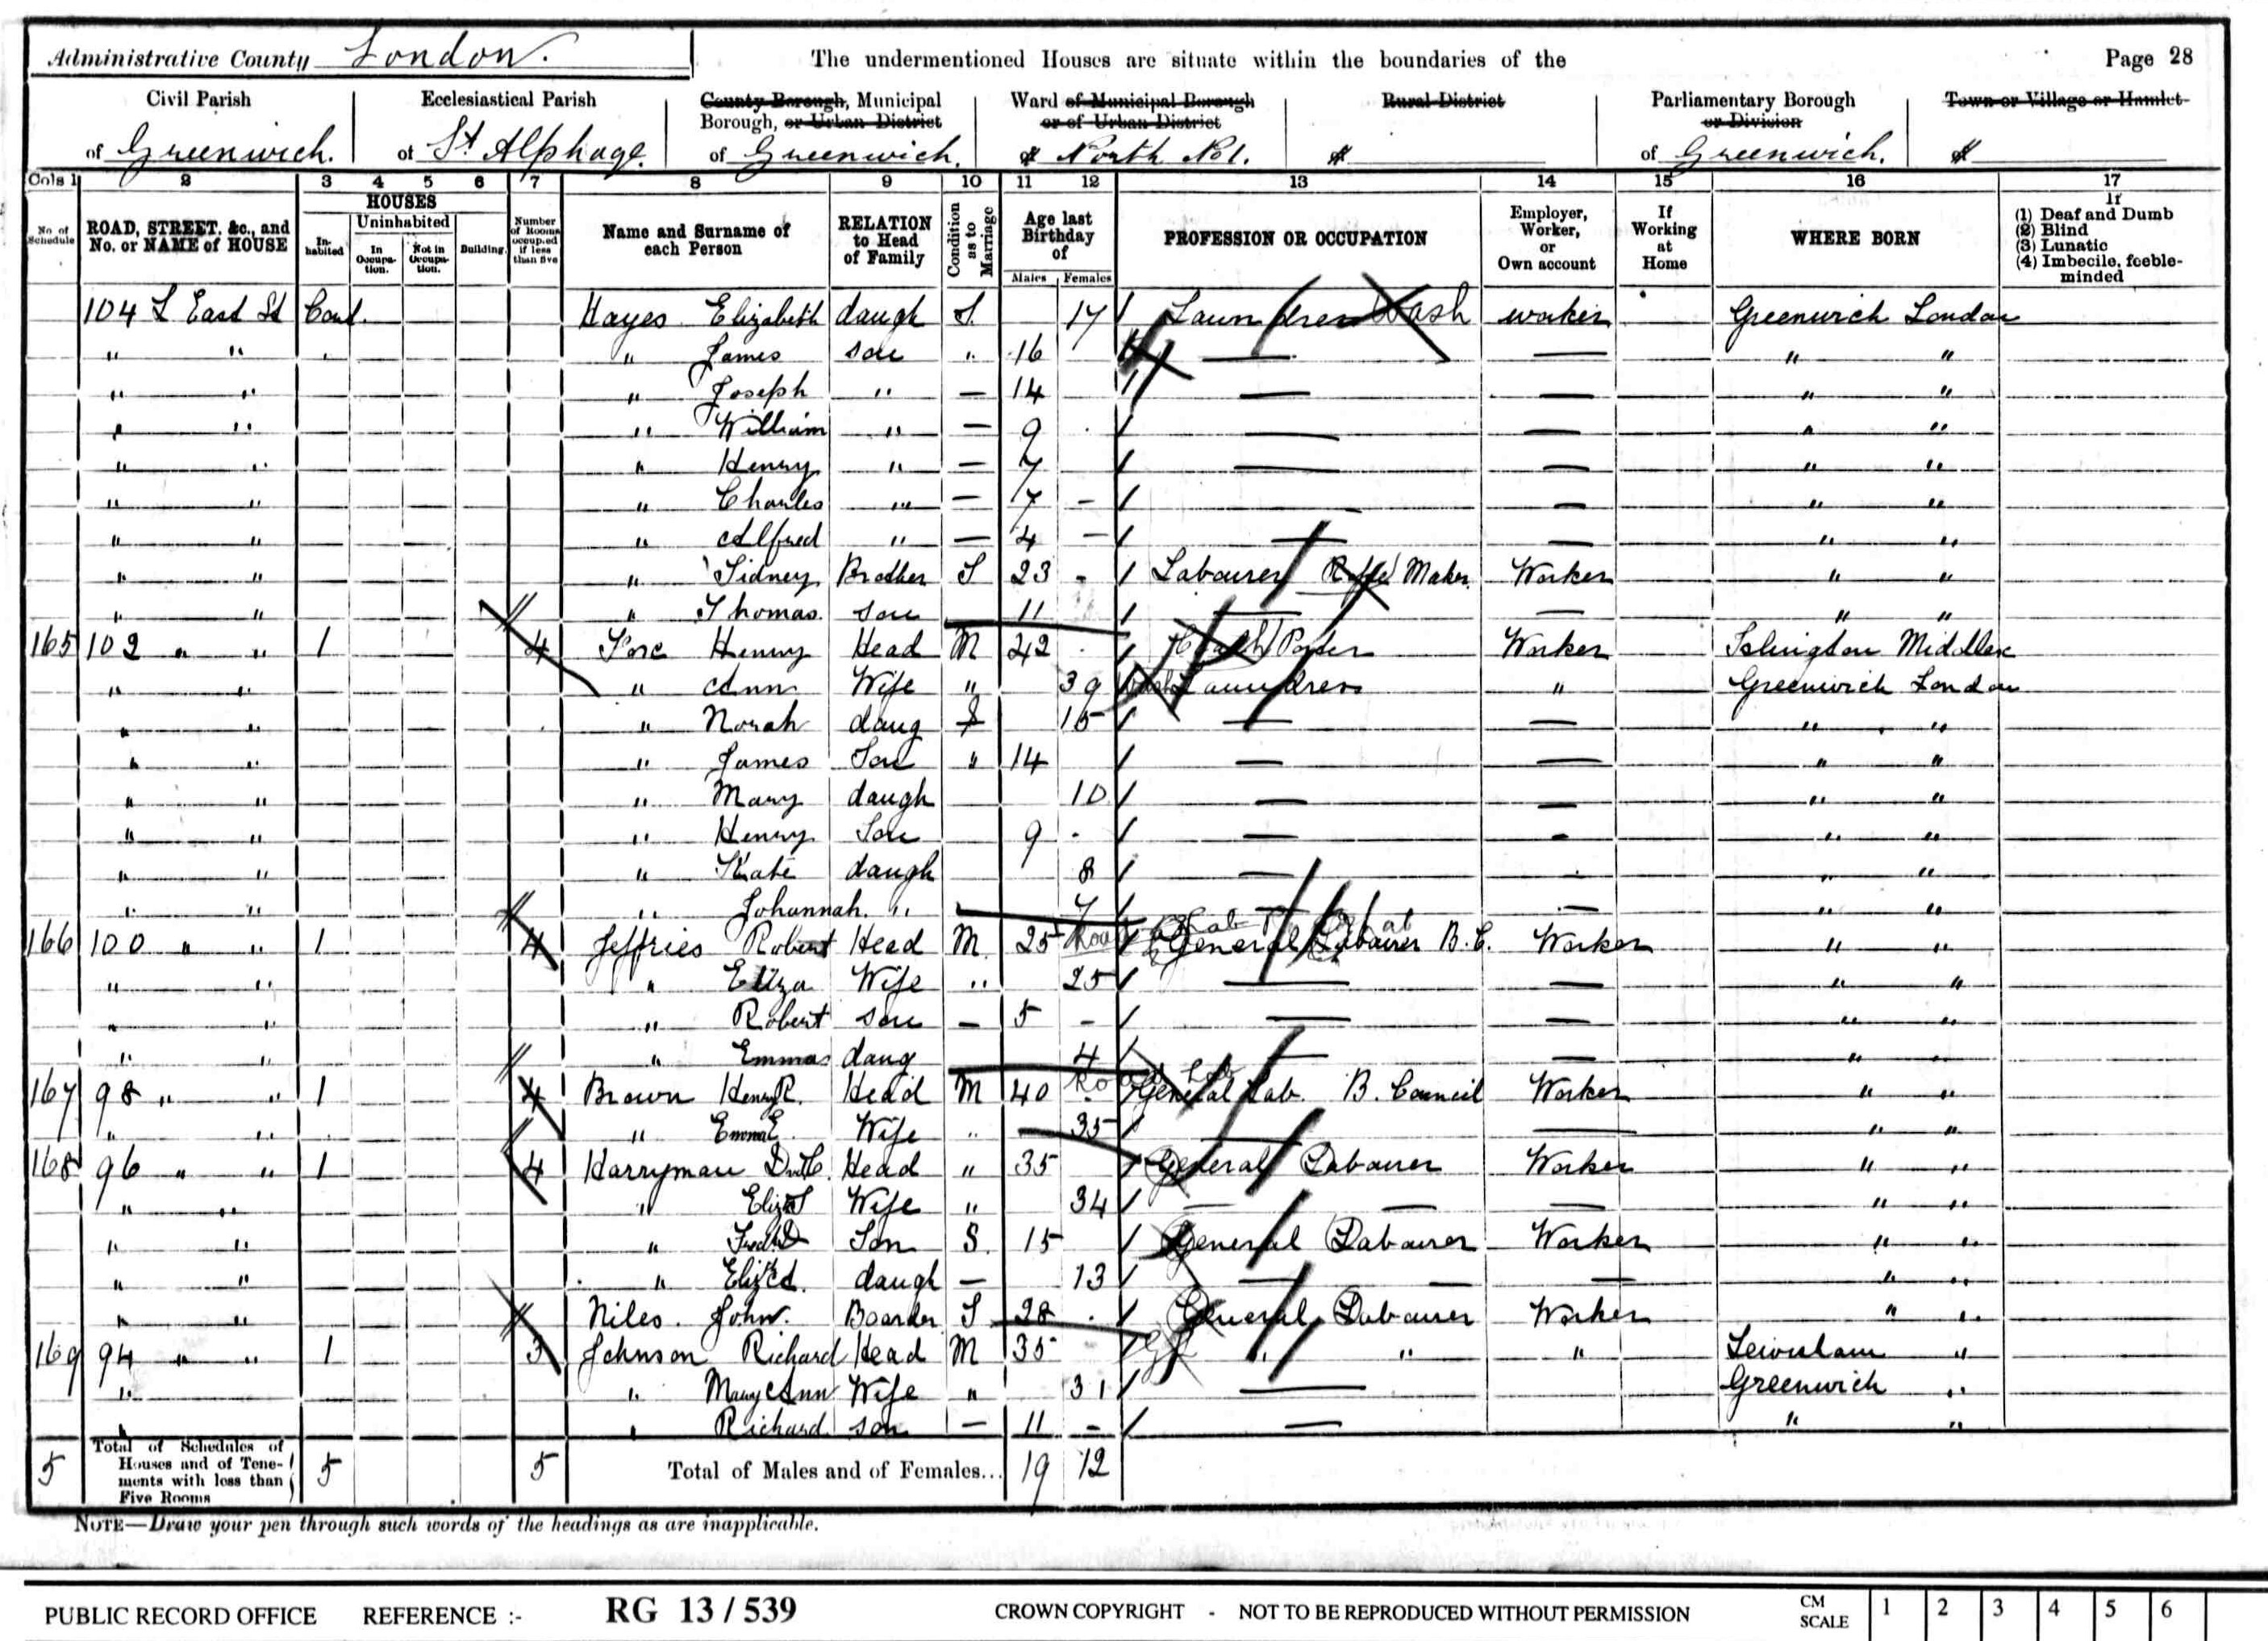 Administrative County London. The undermentioned Houses are situate within the boundaries of the Page 28
Civil Parish of Greenwich.
Ecclesiastical Parish of St Alphage.
County Borough, Municipal Borough, or Urban District of Greenwich.
Ward of Municipal Borough or of Urban District of North No 1.
Rural District of
Parliamentary Borough or Division of Greenwich.
Town or Village or Hamlet of
Cols 1 2 3 4 5 6 7 8 9 10 11 12 13 14 15 16 17
No. of Schedule
ROAD, STREET, &c., and No. or NAME of HOUSE
HOUSES
Inhabited
Uninhabited
In Occupation.
Not in Occupation.
Building.
Number of Rooms occupied if less than five
Name and Surname of each Person
RELATION to Head of Family
Condition as to Marriage
Age last Birthday of
Males Females
PROFESSION OR OCCUPATION
Employer, Worker, or Own account
If Working at Home
WHERE BORN
If
(1) Deaf and Dumb
(2) Blind
(3) Lunatic
(4) Imbecile, feeble-minded
104 East St Cont. Hayes Elizabeth daugh S. 17 Laundress Wash worker Greenwich London
" " " James son " 16 — — " "
" " " Joseph " — 14 — — " "
" " " William " — 9 — — " "
" " " Henry " — 7 — — " "
" " " Charles " — 7 - — — " "
" " " Alfred " — 4 — — — " "
" " " Sidney Brother S 23 - Labourer Maker Worker " "
" " " Thomas. son 11 — — " "
165 102 " " 1 4 Henry Head M 42 Porter Worker Islington Middlex
" " " Ann Wife " 39 Wash Laundress " Greenwich London
" " " Norah daug S 15 — — " "
" " " James Son " 14 — — " "
" " " Mary daugh 10 — — " "
" " " Henry Son 9 - — — " "
" " " Kate daugh 8 — " "
" " " Johannah. " 7 — — " "
166 100 " " 1 4 Jeffries Robert Head M. 25 General Labourer B.C. Worker " "
" " " Eliza Wife " 25 — — " "
" " " Robert son — 5 - — — " "
" " " Emma daug 4 — — " "
167 98 " " 1 4 Brown Henry R. Head M 40 Road Lab General Lab. B. Council Worker " "
" " " Emma E. Wife " 35 — — " "
168 96 " " 1 4 Harryman Head " 35 General Labourer Worker " "
" " " Wife " 34 — — — " "
" " " Son S. 15 General Labourer Worker " "
" " " daugh — 13 — — — " "
" " Niles. John. Boarder S 28 General Labourer Worker " "
169 94 " " 1 3 Johnson Richard Head M 35 " " " Lewisham "
" " Mary Ann Wife " 31 — Greenwich "
" " Richard son — 11 - — " "
5 Total of Schedules of Houses and of Tenements with less than Five Rooms 5 5 Total of Males and of Females... 19 12
NOTE—Draw your pen through such words of the headings as are inapplicable.
PUBLIC RECORD OFFICE REFERENCE :- RG 13 / 539 CROWN COPYRIGHT - NOT TO BE REPRODUCED WITHOUT PERMISSION CM SCALE 1 2 3 4 5 6